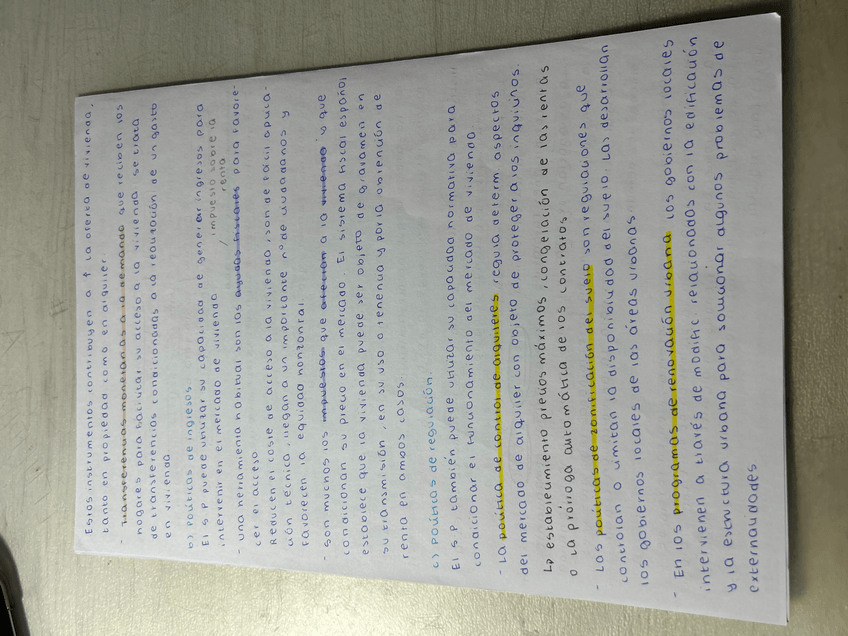 Estos instrumentos contribuyen a ↑ la oferta de vivienda,
tanto en propiedad como en alquiler
- Transferencias monetarias a la demanda que reciben los
hogares para facilitar su acceso a la vivienda. Se trata
de transferencias condicionadas a la realización de un gasto
en vivienda
b) Políticas de ingresos
El SP puede utilizar su capacidad de generar ingresos para
intervenir en el mercado de vivienda / impuesto sobre la
renta
- Una herramienta habitual son las ayudas fiscales para favore-
cer el acceso
Reducen el coste de acceso a la vivienda, son de fácil aplica-
ción técnica, llegan a un importante nº de ciudadanos y
favorecen la equidad horizontal
- Son muchos los impuestos que afectan a la vivienda y que
condicionan su precio en el mercado. El sistema fiscal español
establece que la vivienda puede ser objeto de gravamen en
su transmisión, en su uso o tenencia y por la obtención de
renta en ambos casos
c) Políticas de regulación.
El SP también puede utilizar su capacidad normativa para
condicionar el funcionamiento del mercado de vivienda
- La política de control de alquileres regula determ aspectos
del mercado de alquiler con objeto de proteger a los inquilinos.
↳ establecimiento precios máximos, congelación de las rentas
o la prórroga automática de los contratos.
- Las políticas de zonificación del suelo son regulaciones que
controlan o limitan la disponibilidad del suelo. Las desarrollan
los gobiernos locales de las áreas urbanas.
- En los programas de renovación urbana los gobiernos locales
intervienen a través de modific. relacionados con la edificación
y la estructura urbana para solucionar algunos problemas de
externalidades